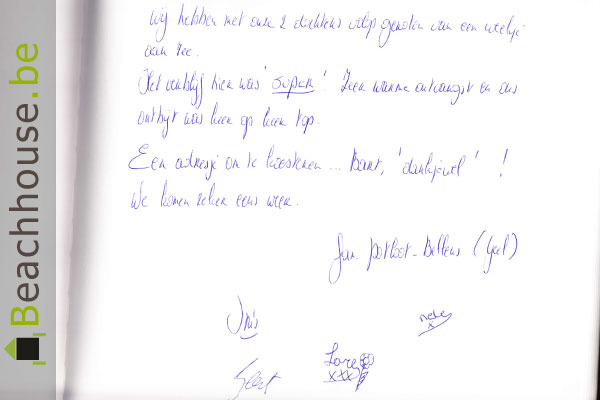 Beachhouse.be
Wij hebben met onze 2 dochters volop genoten van een weekje
aan zee.
Het verblijf hier was 'super'! Zeer warme ontvangst en ons
ontbijt was keer op keer top.
Een adresje om te koesteren ... Bart, 'dankjewel' !
We komen zeker eens weer.
Fam. Potloot-Bellens (Geel)
Iris
nele
x
Lore
xxx
Geert